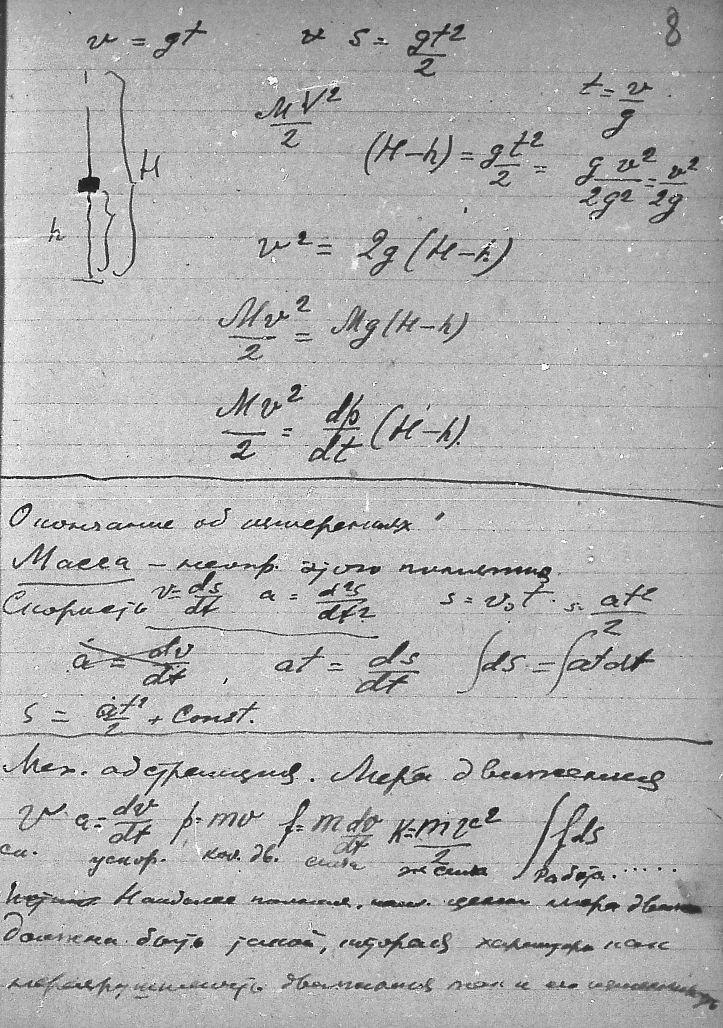 8
v = gt v s = gt²/2
t = v/g
MV²/2
(H-h) = gt²/2 = g v²/2g² = v²/2g
H
h
v² = 2g(H-h)
Mv²/2 = Mg(H-h)
Mv²/2 = dp/dt (H-h).
Окончание об измерениях
Масса – неопр. этого понятия
Скорость v = ds/dt a = d²s/dt² s = v₀t. s = at²/2
a = dv/dt , at = ds/dt ∫ds = ∫at dt
s = at²/2 + Const.
Мех. абстракция. Мера движения
v a = dv/dt p = mv f = m dv/dt K = mv²/2 ∫f ds
ск. ускор. кол. дв. сила ж сила работа......
Наиболее полная, мера движ
должна быть такой, которая характера как
неразрушимость движения так и его